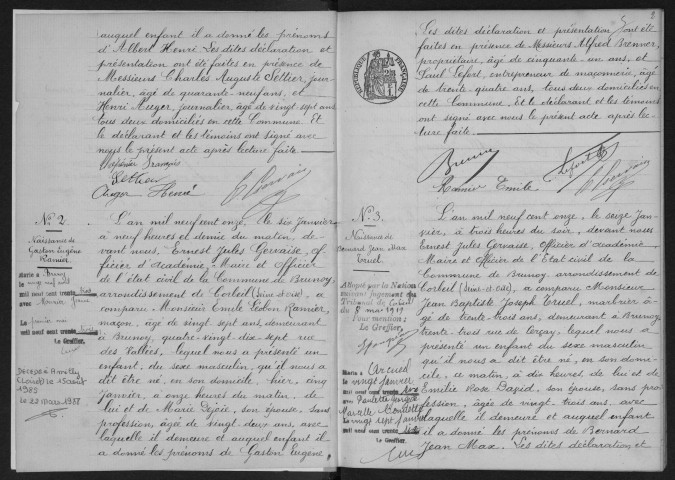 auquel enfant il a donné les prénoms
d'Albert Henri. Les dites déclaration et
présentation ont été faites en présence de
Messieurs Charles Auguste Sellier, jour-
nalier, âgé de quarante-neuf ans, et
Henri Auger, journalier, âgé de vingt sept ans
tous deux domiciliés en cette Commune. Et
le déclarant et les témoins ont signé avec
nous le présent acte après lecture faite
Auger Henri
N° 2.
Naissance de
Gaston Eugène
Ramier
L'an mil neuf cent onze, le six janvier
à neuf heures et demie du matin, de-
vant nous, Ernest Jules Gervaise, of-
ficier d'Académie, Maire et Officier
de l'état civil de la Commune de Brunoy,
arrondissement de Corbeil (Seine et Oise), a
comparu Monsieur Emile Léon Ramier,
maçon, âgé de vingt sept ans, demeurant
à Brunoy, quatre-vingt-dix-sept rue
des Vallées, lequel nous a présenté un
enfant, du sexe masculin, qu'il nous a
dit être né, en son domicile, hier, cinq
janvier à onze heures du matin, de
lui et de Marie Déjoie, son épouse, sans
profession, âgée de vingt-deux ans, avec
laquelle il demeure et auquel enfant il
a donné les prénoms de Gaston Eugène.
Le Greffier,
Décédé à
(Loiret) le 15 août
1982
le 22 mars 1988
2
Les dites déclaration et présentation ont été
faites en présence de Messieurs Alfred Brenner,
propriétaire, âgé de cinquante-un ans, et
Paul Lefort, entrepreneur de maçonnerie, âgé
de trente-quatre ans, tous deux domiciliés en
cette Commune. Et le déclarant et les témoins
ont signé avec nous le présent acte après lec-
ture faite
RÉPUBLIQUE FRANÇAISE
Ramier Emile
N° 3.
Naissance de
Bernard Jean Max
Truel
Adopté par la Nation
suivant jugement du
Tribunal de Corbeil
du 8 mai 1919
Pour mention:
Le Greffier,
L'an mil neuf cent onze, le seize jan-
vier, à trois heures du soir, devant nous
Ernest Jules Gervaise, Officier d'Académie
Maire et Officier de l'Etat civil de la
Commune de Brunoy arrondissement de
Corbeil (Seine-et-Oise), a comparu Monsieur
Jean Baptiste Joseph Truel, marbrier, â-
gé de trente-trois ans, demeurant à Brunoy
trente trois rue de Cerçay, lequel nous a
présenté un enfant du sexe masculin
qu'il nous a dit être né, en son domi-
cile, ce matin, à dix heures, de lui et de
Emilie Rose Dazid, son épouse, sans pro-
fession, âgée de vingt trois ans, avec
laquelle il demeure et auquel enfant
il a donné les prénoms de Bernard
Jean Max. Les dites déclaration, et
Marié à Arcueil
le vingt janvier
mil neuf cent trente
Le Greffier.